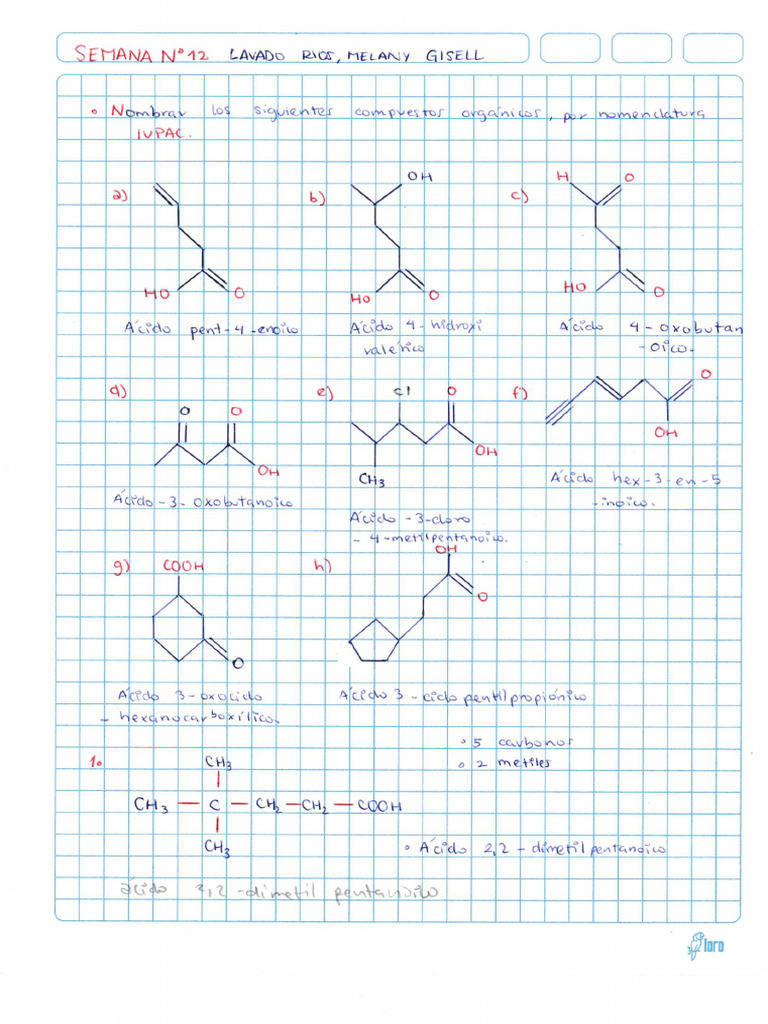 SEMANA Nº12 LAVADO RIOS, MELANY GISELL
• Nombrar los siguientes compuestos orgánicos, por nomenclatura
IUPAC.
a)
HO O
Ácido pent-4-enoico
b) OH
HO O
Ácido 4-hidroxi
valérico
c) H O
HO O
Ácido 4-oxobutan
-oico.
d) O O
OH
Ácido-3-oxobutanoico
e) Cl O
OH
CH3
Ácido -3-cloro
- 4-metilpentanoico.
f) O
OH
Ácido hex-3-en-5
-inoico.
g) COOH
O
Ácido 3-oxociclo
- hexanocarboxílico.
h) OH
O
Ácido 3-ciclopentilpropiónico
• 5 carbonos
• 2 metiles
1. CH3
CH3 — C — CH2 — CH2 — COOH
CH3
• Ácido 2,2-dimetilpentanoico
ácido 2,2-dimetil pentanoico
loro